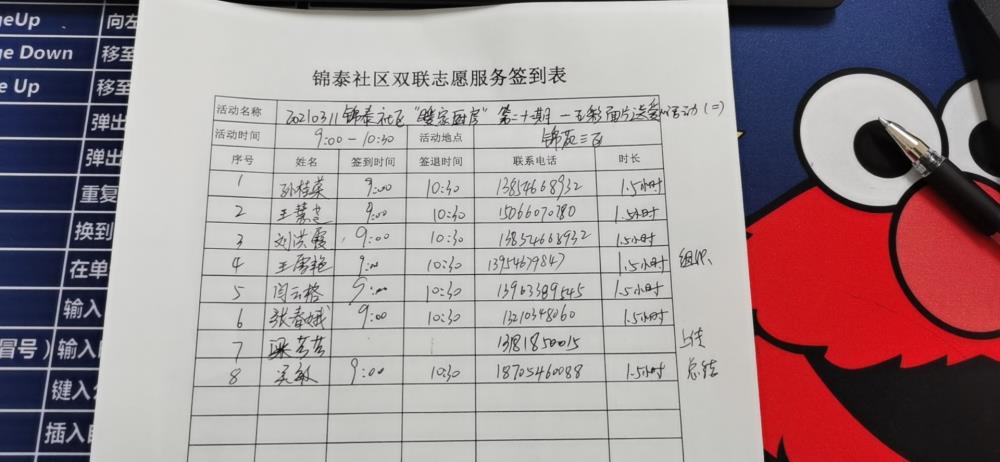 geUp 向左
ge Down 移至
e Up 移至
弹出
弹出
重复
换到
在单
输入
冒号）输入
键入
插入
锦泰社区双联志愿服务签到表
活动名称 20210311锦泰社区"暖家厨房"第二十期一五彩面片送爱心活动(二)
活动时间 9:00-10:30 活动地点 锦苑三区
序号 姓名 签到时间 签退时间 联系电话 时长
1 孙桂英 9:00 10:30 13854668932 1.5小时
2 王慧兰 9:00 10:30 15066070780 1.5小时
3 刘洪霞 9:00 10:30 13854668932 1.5小时
4 王唐艳 9:00 10:30 13954679847 1.5小时 组织
5 闫云格 9:00 10:30 13963389545 1.5小时
6 张春娥 9:00 10:30 13210348060 1.5小时
7 苦苦 13181850015 上传
8 吴敏 9:00 10:30 18705460088 1.5小时 总结